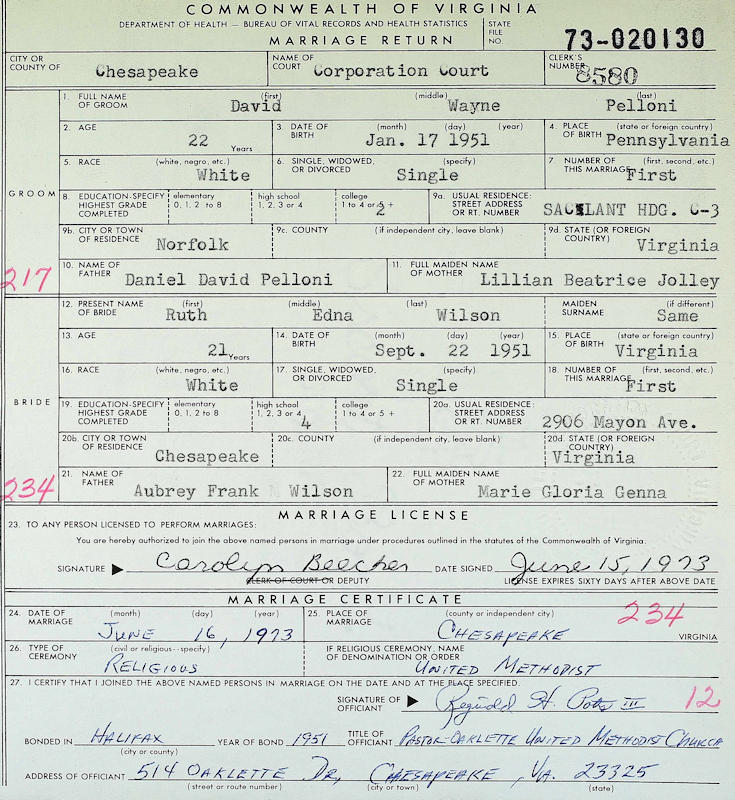 COMMONWEALTH OF VIRGINIA
DEPARTMENT OF HEALTH — BUREAU OF VITAL RECORDS AND HEALTH STATISTICS
MARRIAGE RETURN
STATE FILE NO. 73-020130
CITY OR COUNTY OF Chesapeake NAME OF COURT Corporation Court CLERK'S NUMBER 8580
GROOM
1. FULL NAME OF GROOM (first) David (middle) Wayne (last) Pelloni
2. AGE 22 Years 3. DATE OF BIRTH (month) (day) (year) Jan. 17 1951 4. PLACE OF BIRTH (state or foreign country) Pennsylvania
5. RACE (white, negro, etc.) White 6. SINGLE, WIDOWED, OR DIVORCED (specify) Single 7. NUMBER OF THIS MARRIAGE (first, second, etc.) First
8. EDUCATION-SPECIFY HIGHEST GRADE COMPLETED elementary 0, 1, 2 to 8 high school 1, 2, 3 or 4 college 1 to 4 or 5 + 2 9a. USUAL RESIDENCE: STREET ADDRESS OR RT. NUMBER SACLANT HDG. C-3
9b. CITY OR TOWN OF RESIDENCE Norfolk 9c. COUNTY (if independent city, leave blank) 9d. STATE (OR FOREIGN COUNTRY) Virginia
217 10. NAME OF FATHER Daniel David Pelloni 11. FULL MAIDEN NAME OF MOTHER Lillian Beatrice Jolley
BRIDE
12. PRESENT NAME OF BRIDE (first) Ruth (middle) Edna (last) Wilson MAIDEN SURNAME (if different) Same
13. AGE 21 Years 14. DATE OF BIRTH (month) (day) (year) Sept. 22 1951 15. PLACE OF BIRTH (state or foreign country) Virginia
16. RACE (white, negro, etc.) White 17. SINGLE, WIDOWED, OR DIVORCED (specify) Single 18. NUMBER OF THIS MARRIAGE (first, second, etc.) First
19. EDUCATION-SPECIFY HIGHEST GRADE COMPLETED elementary 0, 1, 2 to 8 high school 1, 2, 3 or 4 4 college 1 to 4 or 5 + 20a. USUAL RESIDENCE: STREET ADDRESS OR RT. NUMBER 2906 Mayon Ave.
20b. CITY OR TOWN OF RESIDENCE Chesapeake 20c. COUNTY (if independent city, leave blank) 20d. STATE (OR FOREIGN COUNTRY) Virginia
234 21. NAME OF FATHER Aubrey Frank Wilson 22. FULL MAIDEN NAME OF MOTHER Marie Gloria Genna
MARRIAGE LICENSE
23. TO ANY PERSON LICENSED TO PERFORM MARRIAGES:
You are hereby authorized to join the above named persons in marriage under procedures outlined in the statutes of the Commonwealth of Virginia.
SIGNATURE ▶ Carolyn Beecher DATE SIGNED June 15, 1973
CLERK OF COURT OR DEPUTY LICENSE EXPIRES SIXTY DAYS AFTER ABOVE DATE
MARRIAGE CERTIFICATE
24. DATE OF MARRIAGE (month) (day) (year) JUNE 16, 1973 25. PLACE OF MARRIAGE (county or independent city) CHESAPEAKE 234 VIRGINIA
26. TYPE OF CEREMONY (civil or religious--specify) RELIGIOUS IF RELIGIOUS CEREMONY, NAME OF DENOMINATION OR ORDER UNITED METHODIST
27. I CERTIFY THAT I JOINED THE ABOVE NAMED PERSONS IN MARRIAGE ON THE DATE AND AT THE PLACE SPECIFIED.
SIGNATURE OF OFFICIANT ▶ Reginald H. Potts III 12
BONDED IN HALIFAX (city or county) YEAR OF BOND 1951 TITLE OF OFFICIANT PASTOR-OAKLETTE UNITED METHODIST CHURCH
ADDRESS OF OFFICIANT 514 OAKLETTE DR, CHESAPEAKE, VA. 23325
(street or route number) (city or town) (state)